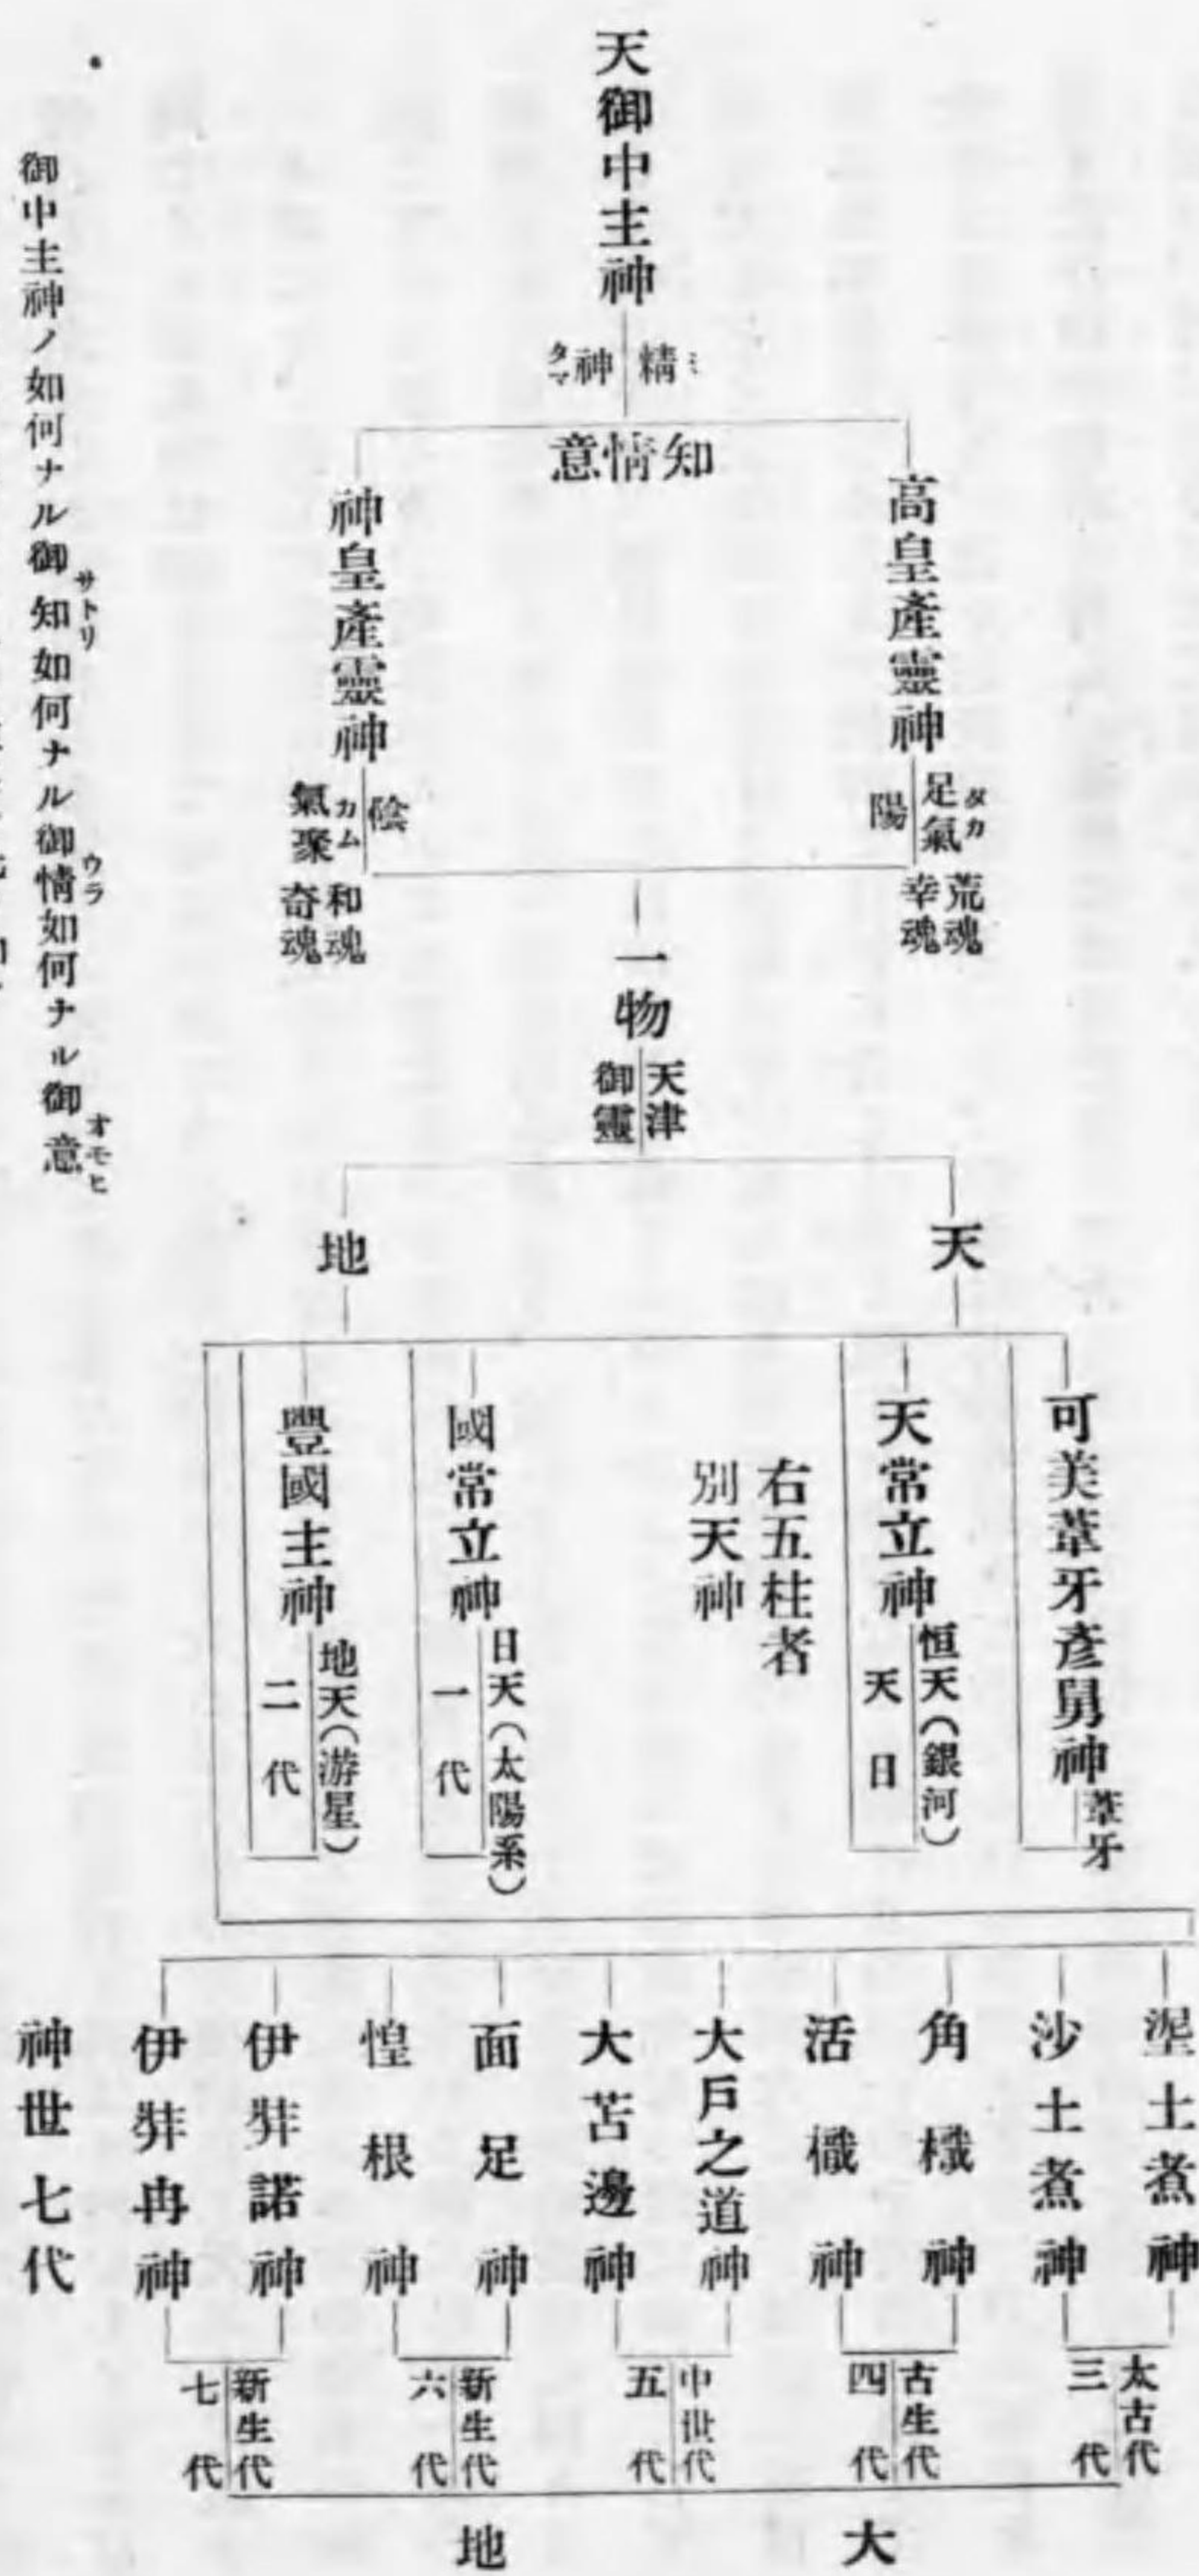 天御中主神
精 ミ
神 タマ
知情意
高皇產靈神
足氣 タカ
陽
荒魂
幸魂
神皇產靈神
陰
カム
氣聚
和魂
奇魂
一物
天津
御靈
天
地
可美葦牙彥舅神
葦牙
天常立神
恒天(銀河)
天日
右五柱者
別天神
國常立神
日天(太陽系)
一代
豐國主神
地天(游星)
二代
埿土煮神
沙土煮神
太古代
三代
角樴神
活樴神
古生代
四代
大戶之道神
大苫邊神
中世代
五代
面足神
惶根神
新生代
六代
伊弉諾神
伊弉冉神
新生代
七代
神世七代
大地
御中主神ノ如何ナル御知如何ナル御情如何ナル御意
サトリ
ウラ
オモヒ